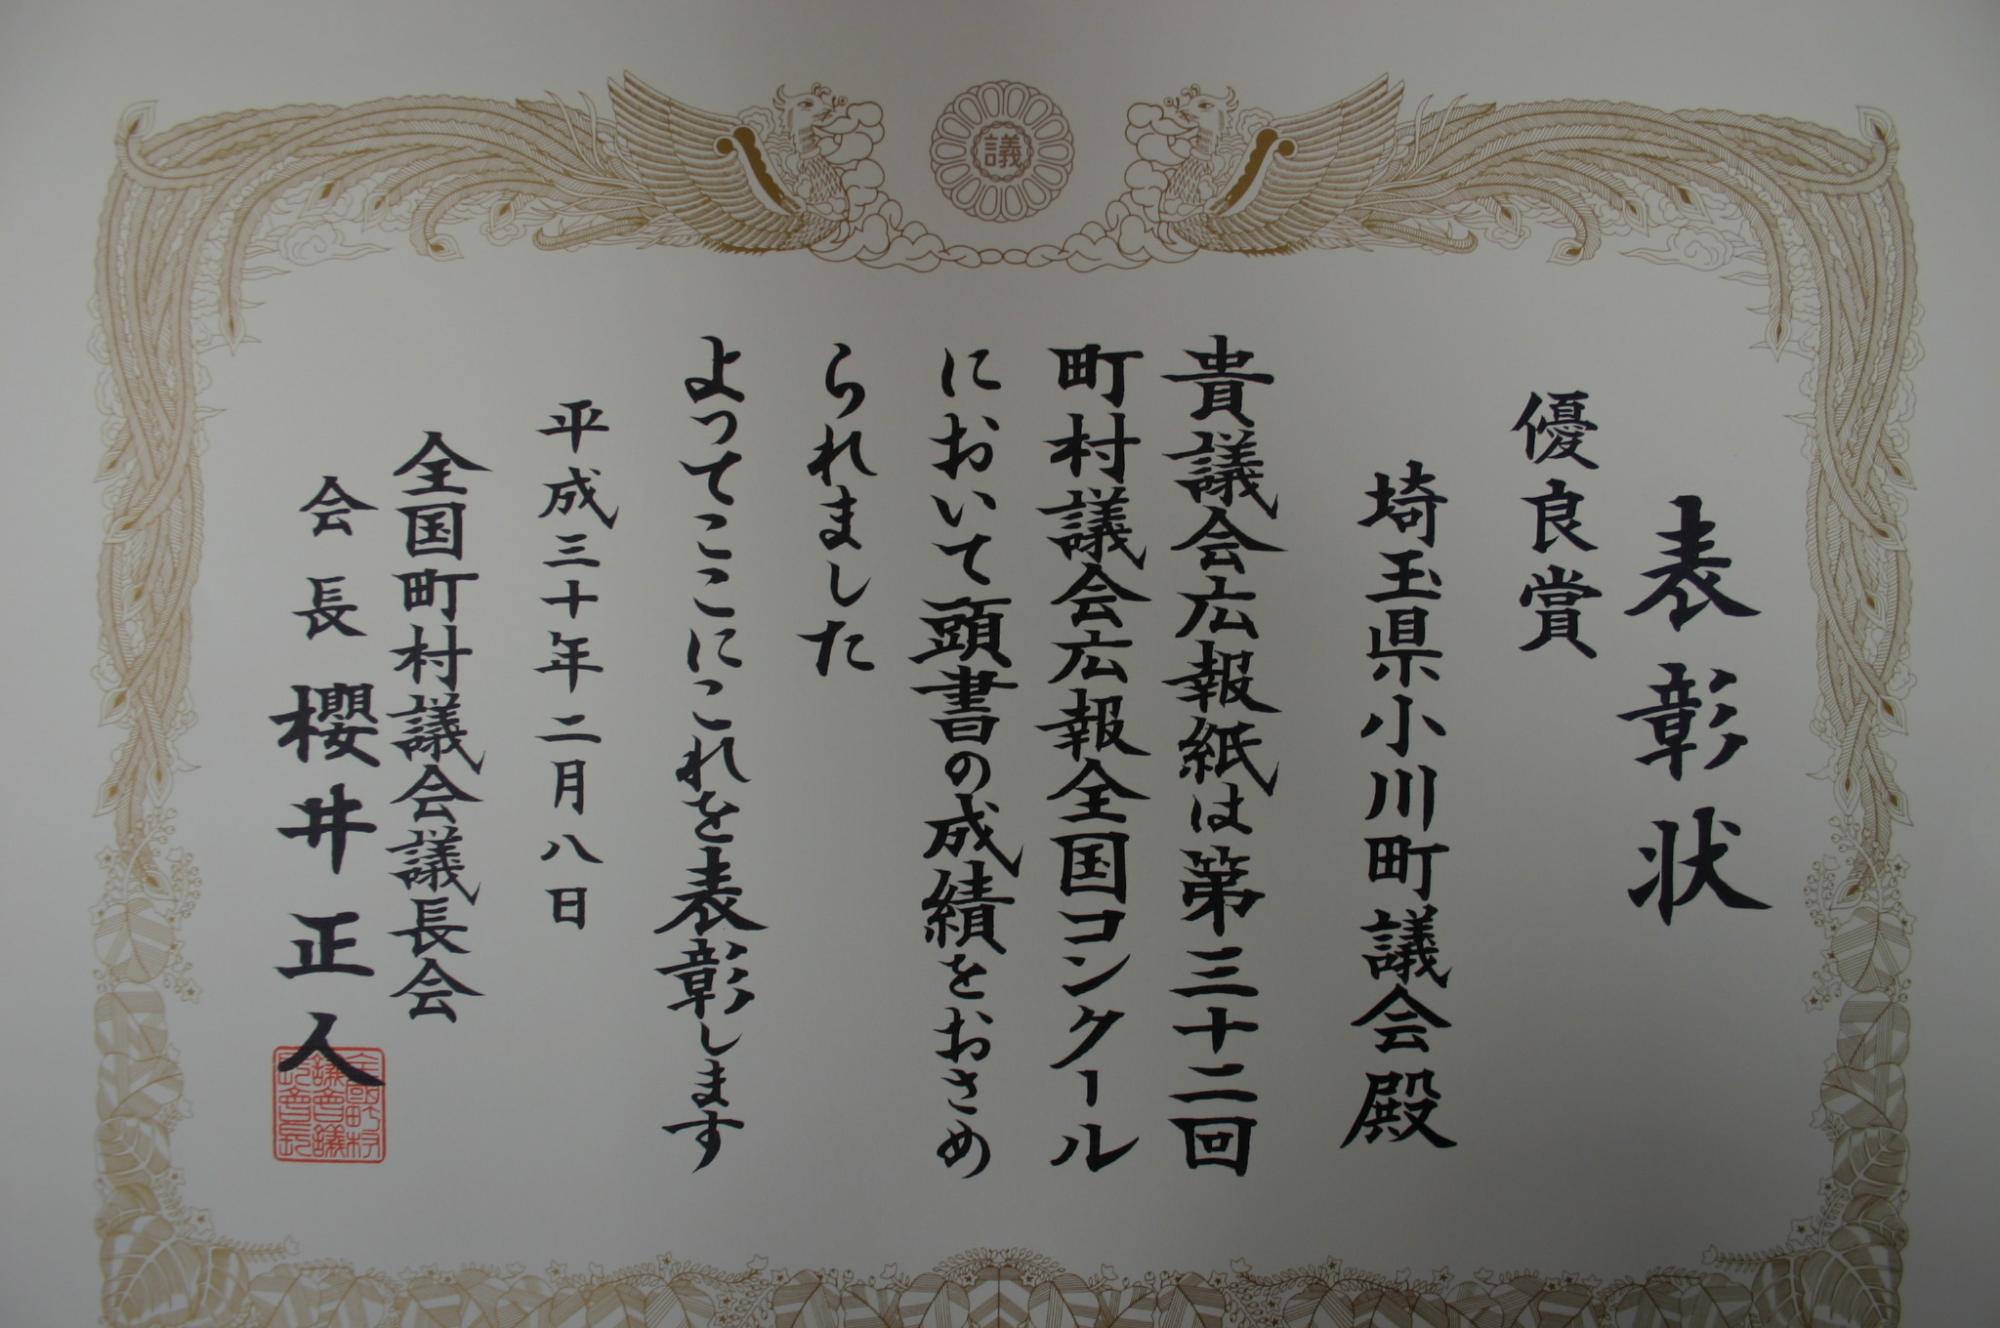 議
表彰状
優良賞
埼玉県小川町議会殿
貴議会広報紙は第三十二回
町村議会広報全国コンクール
において頭書の成績をおさめ
られました
よってここにこれを表彰します
平成三十年二月八日
全国町村議会議長会
会長 櫻井正人